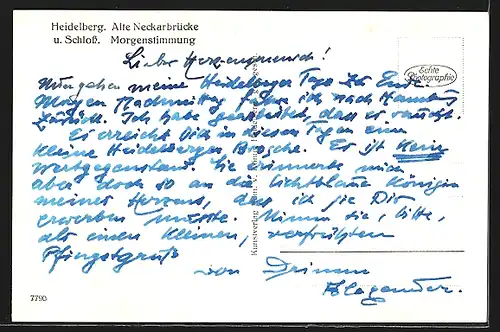 Heidelberg. Alte Neckarbrücke
u. Schloß. Morgenstimmung
Echte
Photographie
Lieber Herzensmensch!
Nun gehen meine Heidelberger Tage zu Ende.
Morgen Nachmittag fahre ich nach Hamburg
zurück. Ich habe daß es rauscht.
Es erreicht Dich in diesen Tagen eine
kleine Heidelberger Brosche. Es ist kein
Wertgegenstand. Sie erinnerte mich
aber doch so an die lichtblaue Königin
meines Herzens, daß ich sie Dir
erwerben mußte. Nimm sie, bitte,
als einen kleinen, verfrühten
Pfingstgruß
von Deinem
Alexander.
Kunstverlag
7790